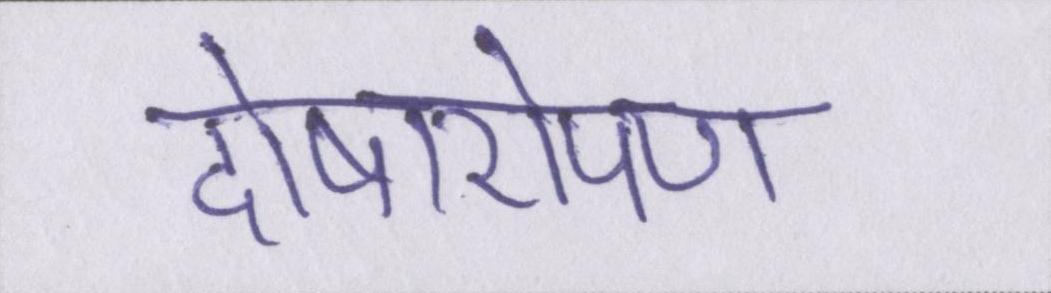 दोषारोपण